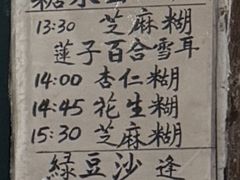 糖水
13:30 芝麻糊
蓮子百合雪耳
14:00 杏仁糊
14:45 花生糊
15:30 芝麻糊
綠豆沙 逢